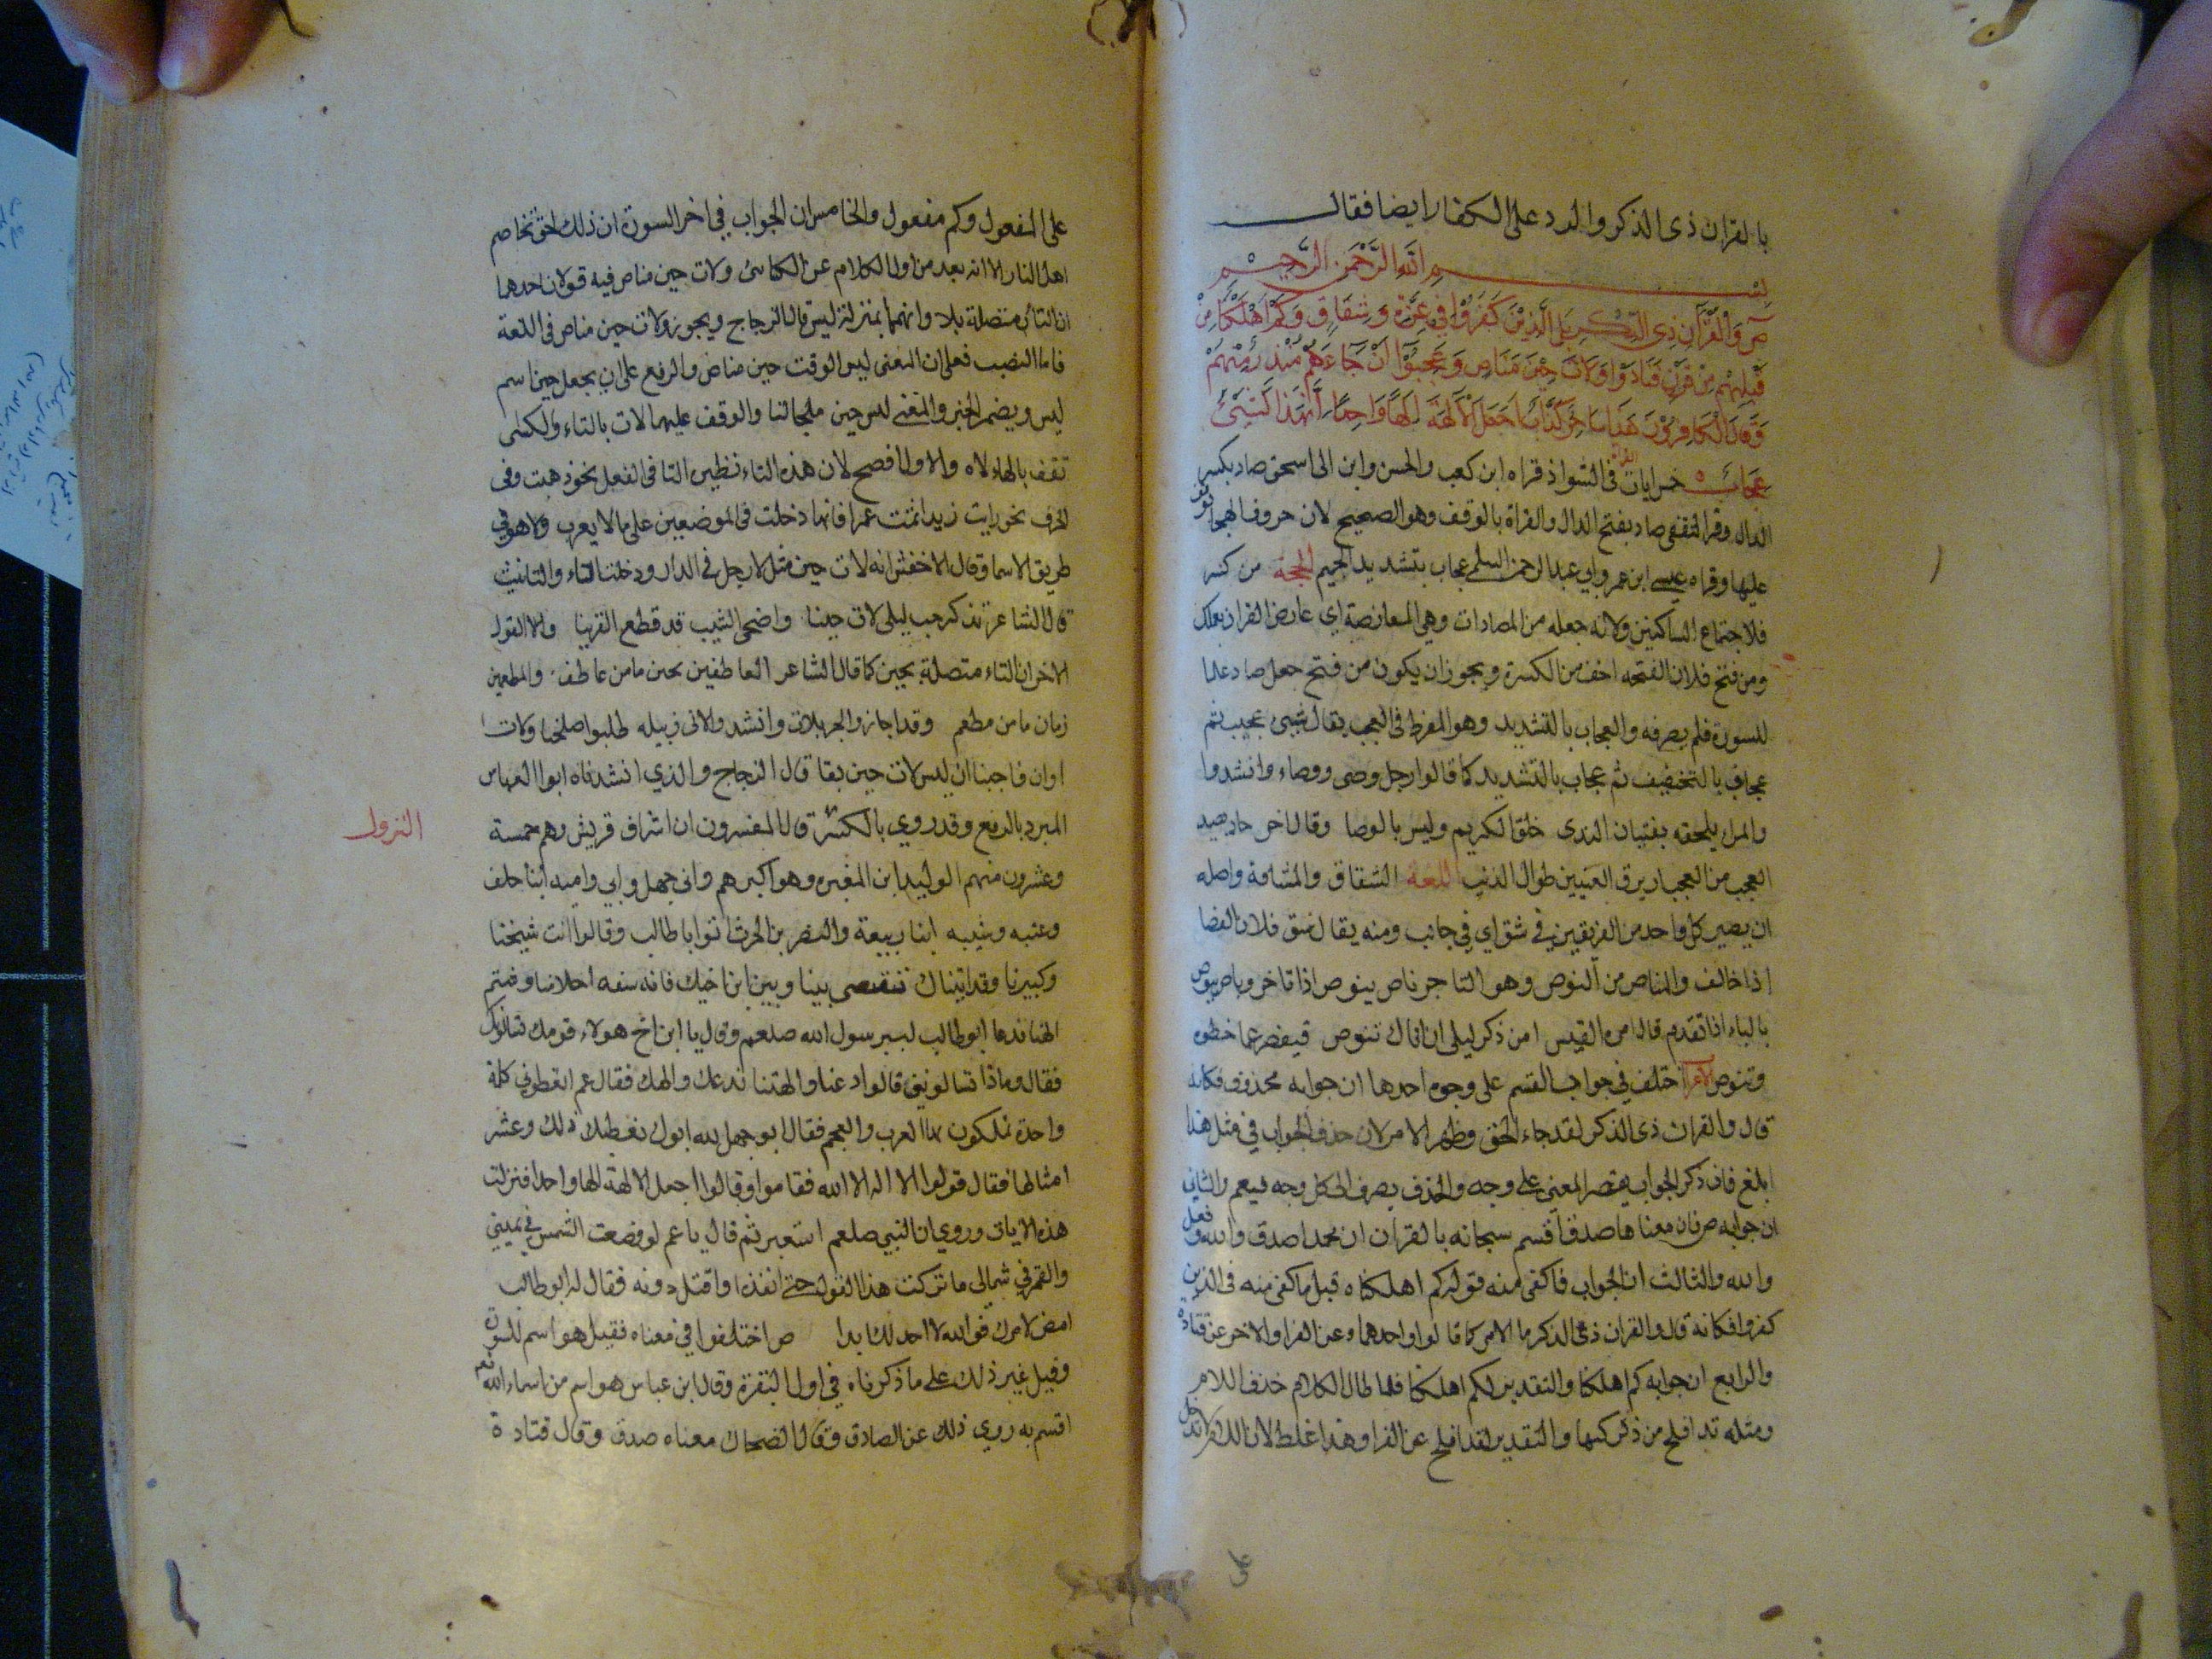 بالقران ذى الذكر والرد على الكفار ايضا فقال
بسم الله الرحمن الرحيم
ص وَالْقُرْآنِ ذِي الذِّكْرِ بَلِ الَّذِيْنَ كَفَرُوْا فِي عِزَّةٍ وَشِقَاقٍ وَكَمْ اَهْلَكْنَا مِنْ
قَبْلِهِمْ مِنْ قَرْنٍ فَنَادَوْا وَلَاتَ حِيْنَ مَنَاصٍ وَعَجِبُوْا اَنْ جَآءَهُمْ مُنْذِرٌ مِنْهُمْ
وَقَالَ الْكَافِرُوْنَ هَذَا سَاحِرٌ كَذَّابٌ اَجَعَلَ الْآلِهَةَ اِلَهًا وَاحِدًا اِنَّ هَذَا لَشَيْئٌ
عُجَابٌ خمس ايات القراة فى الشواذ قراه ابن كعب والحسن وابن ابى اسحق صاد بكسر
الدال وقرا الثقفى صاد بفتح الدال والقراة بالوقف وهو الصحيح لان حروف الهجا يوقف
عليها وقراه عيسى ابن عمر وابي عبد الرحمن السلمى عجاب بتشديد الجيم الحجة من كسر
فلاجتماع الساكنين ولانه جعله من المصادات وهى المعارضة اي عارض القران بعملك
ومن فتح فلان الفتحه اخف من الكسرة ويجوز ان يكون من فتح جعل صاد علما
للسورة فلم يصرفه والعجاب بالتشديد وهو المفرط فى العجب يقال شيى عجيب ثم
عجاب بالتخفيف ثم عجاب بالتشديد كما قالوا رجل وضى ووضاء وانشدوا
والمرء يلحقه بفتيان الندى خلق الكريم وليس بالوضا وقال اخر جاد بصيد
العجب من العجب ازيرق العينين طوال الذنب اللغة الشقاق والمشاقة واصله
ان يصير كل واحد من الفريقين في شق اي في جانب ومنه يقال شق فلان العصا
اذا خالف والمناص من النوص وهو التاخر ناص ينوص اذا تاخر وباص يبوص
بالباء اذا تقدم قال امرء القيس امن ذكر ليلى ان ناتك تنوص فيقصر عنها خطوه
وتبوص الاعراب اختلف في جواب القسم على وجوه احدها ان جوابه محذوف فكانه
قال والقران ذى الذكر لقد جاء الحق وظهر الامر لان حذف الجواب فى مثل هذا
ابلغ فان ذكر الجواب يقصر المعنى على وجه والحذف يصرف الى كل وجه فيعم والثاني
ان جوابه ص فان معناها صدق اقسم سبحانه بالقران ان محمدا صدق والله وفعل
والله والثالث ان الجواب فاكتفى منه قوله كم اهلكناه قبل ما كفى منه فى الذين
كفروا فكانه قال والقران ذى الذكر ما الامر كما قالوا واحدهما عن الفرا والاخر عن قتادة
والرابع ان جوابه كم اهلكنا والتقدير لكم اهلكنا فلما طال الكلام حذف اللام
ومثله قد افلح من ذكر كيها والتقدير لقد افلح عن الفرا وهذا غلط لان اللام لا تدخل
على
على المفعول وكم مفعول والخامس ان الجواب في اخر السورة ان ذلك لحق تخاصم
اهل النار الا انه بعد من اول الكلام عن الكسائى ولات حين مناص فيه قولان احدهما
ان التائى متصلة بلا وانهما بمنزلة ليس قال الزجاج ويجوز ولات حين مناص فى اللغة
فاما النصب فعلى ان المعنى ليس الوقت حين مناص والرفع على ان يجعل حين اسم
ليس ويضمر الخبر والمعنى ليس حين ملجا لنا والوقف عليها لات بالتاء والكسائى
تقف بالهاء لاه والاول افصح لان هذه التاء نظير التا فى الفعل نحو ذهبت وفى
الحرف نحو رايت زيدا ثمت عمرا فانها دخلت فى الموضعين على ما لا يعرب ولا هو فى
طريق الاسما وقال الاخفش انه لات حين مثل لا رجل فى الدار ودخلت التاء والتانيث
قال الشاعر تذكر حب ليلى لات حينا واضحى الشيب قد قطع القرينا والا القول
الاخر ان التاء متصلة بحين كما قال الشاعر العاطفين تحين ما من عاطف والمطعمين
زمان ما من مطعم وقد اجاز والجر بلات وانشد والابى زبيله طلبوا صلحنا ولات
اوان فاجبنا ان ليس لات حين بقا قال الزجاج والذي انشدناه ابوا العباس
المبرد بالرفع وقد روي بالكسر قال المفسرون ان اشراف قريش وهم خمسة
النزول
وعشرون منهم الوليد ابن المغيره وهو اكبرهم وابى جهل وابي واميه ابنا خلف
وعتبه وشيبه ابنا ربيعة والنضر بن الحرث اتوا باطالب وقالوا انت شيخنا
وكبيرنا وقد اتيناك تنقصى بينا وبين ابن اخيك فانه سفه احلامنا وشتم
الهتنا فدعا ابو طالب لبير رسول الله صلعم وقال يا ابن اخ هولاء قومك تسالونك
فقال وماذا تسالونني قالوا دعنا والهتنا ندعك والهك فقال عم اتعطوني كلمة
واحدة تملكون بها العرب والعجم فقال ابو جهل لله ابوك نعطيك ذلك وعشر
امثالها فقال قولوا لا اله الا الله فقاموا وقالوا اجعل الالهة الها واحدا فنزلت
هذه الايات وروي ان النبي صلعم استعبر ثم قال يا عم لو وضعت الشمس في يميني
والقمر في شمالى ما تركت هذا القول حتى انفذه او اقتل دونه فقال له ابو طالب
امض لامرك فوالله لا اخذلك ابدا ص اختلفوا في معناه فقيل هو اسم للسورة
وقيل غير ذلك على ما ذكرناه في اول البقرة وقال ابن عباس هو اسم من اسماء الله تع
اقسم به روي ذلك عن الصادق وقال الضحاك معناه صدق وقال قتادة